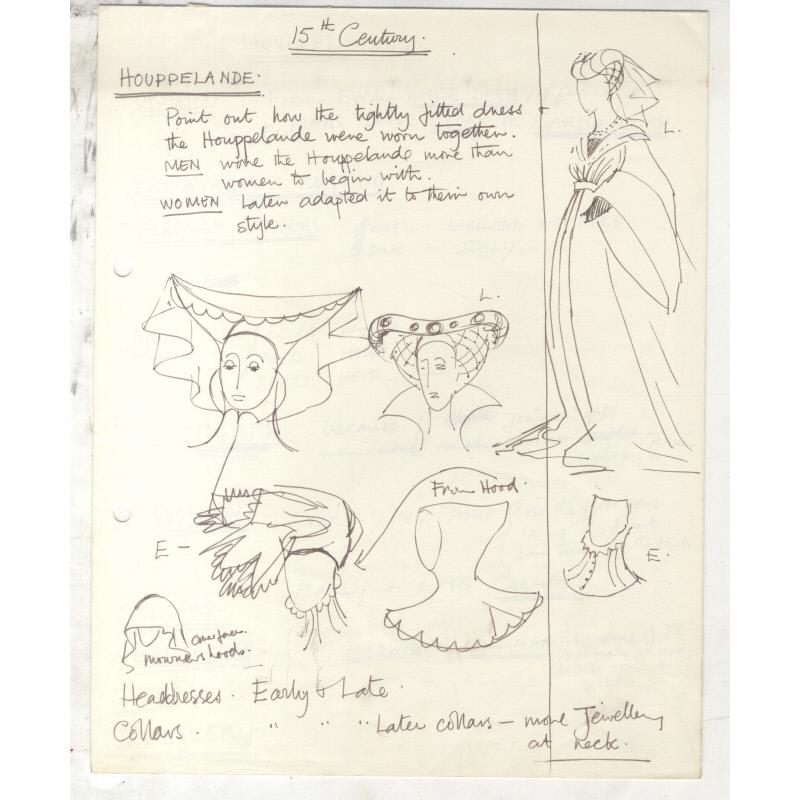 15th Century.
HOUPPELANDE.
Point out how the tightly fitted dress +
the Houppelande were worn together.
MEN wore the Houppelande more than
women to begin with.
WOMEN later adapted it to their own
style.
L.
L.
From Hood.
E -
E.
mourners hoods.
Headdresses. Early + Late.
Collars. " " " Later collars - more Jewellery
at neck.